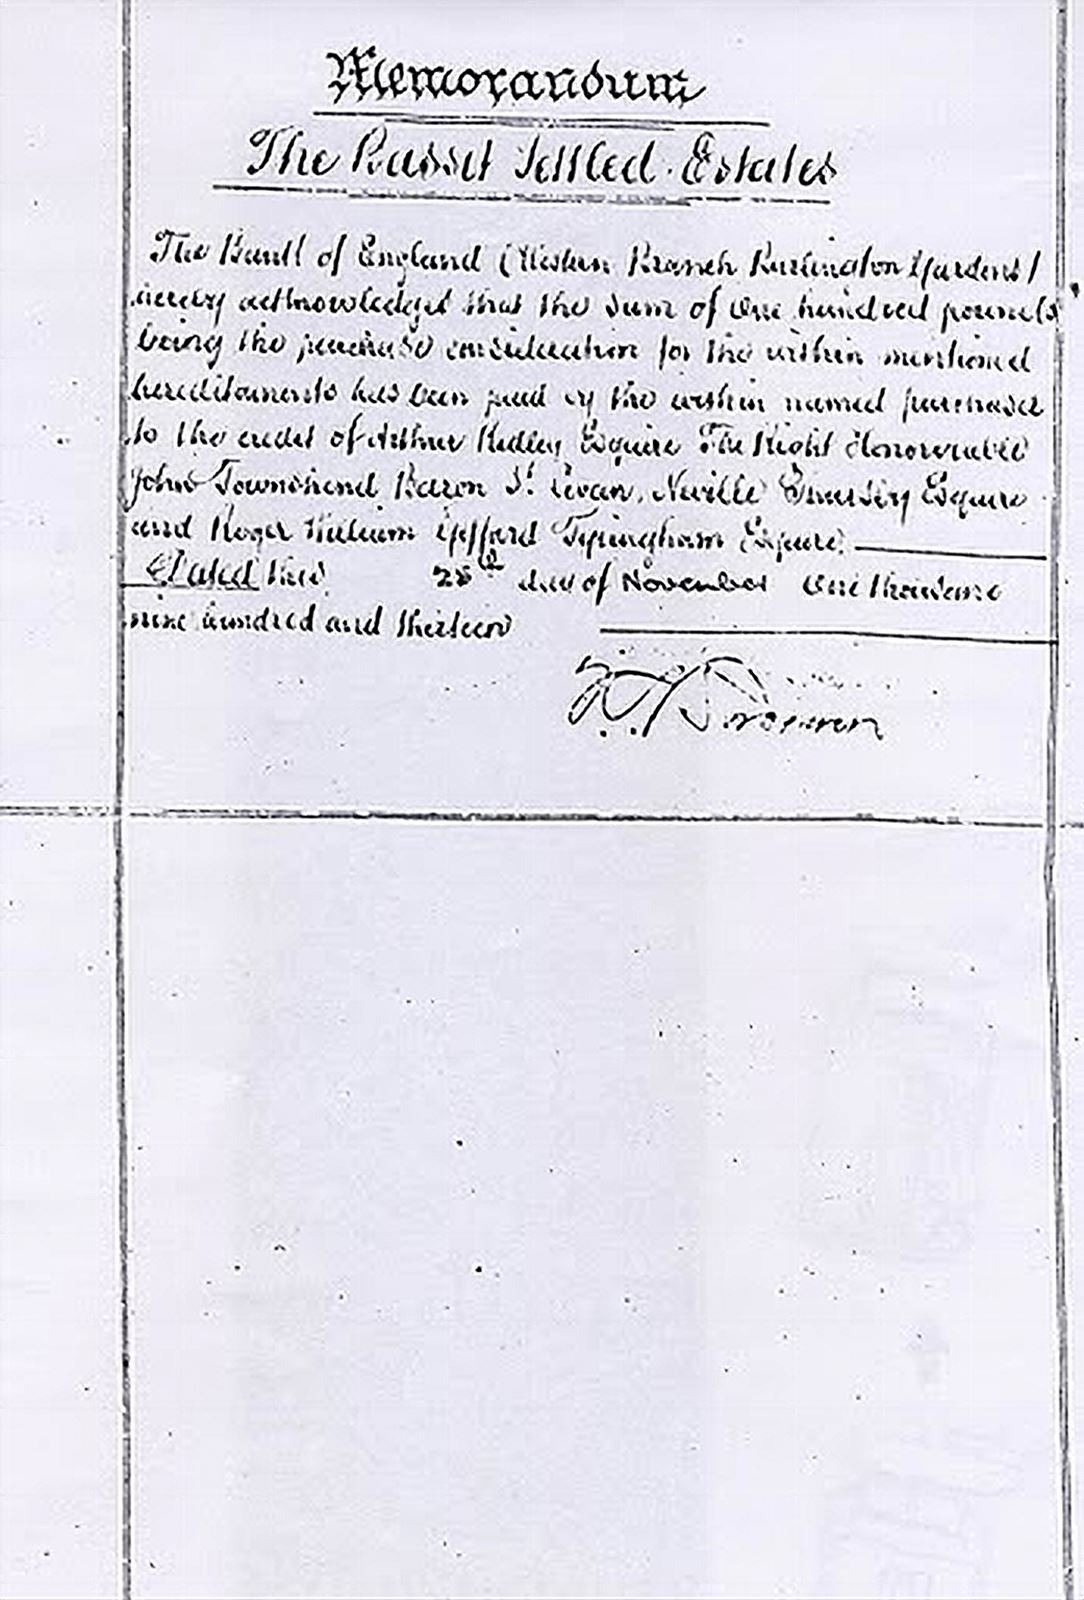 Memorandum
The Basset Settled Estates
The Bank of England (Western Branch Burlington Gardens)
hereby acknowledges that the sum of One hundred pounds
being the purchase consideration for the within mentioned
hereditaments has been paid by the within named purchaser
to the credit of Arthur Ridley Esquire The Right Honourable
John Townshend Baron St. Levan, Neville Esquire
and Roger William Gifford Tyringham Esquire.
Dated this 28th day of November One thousand
nine hundred and thirteen